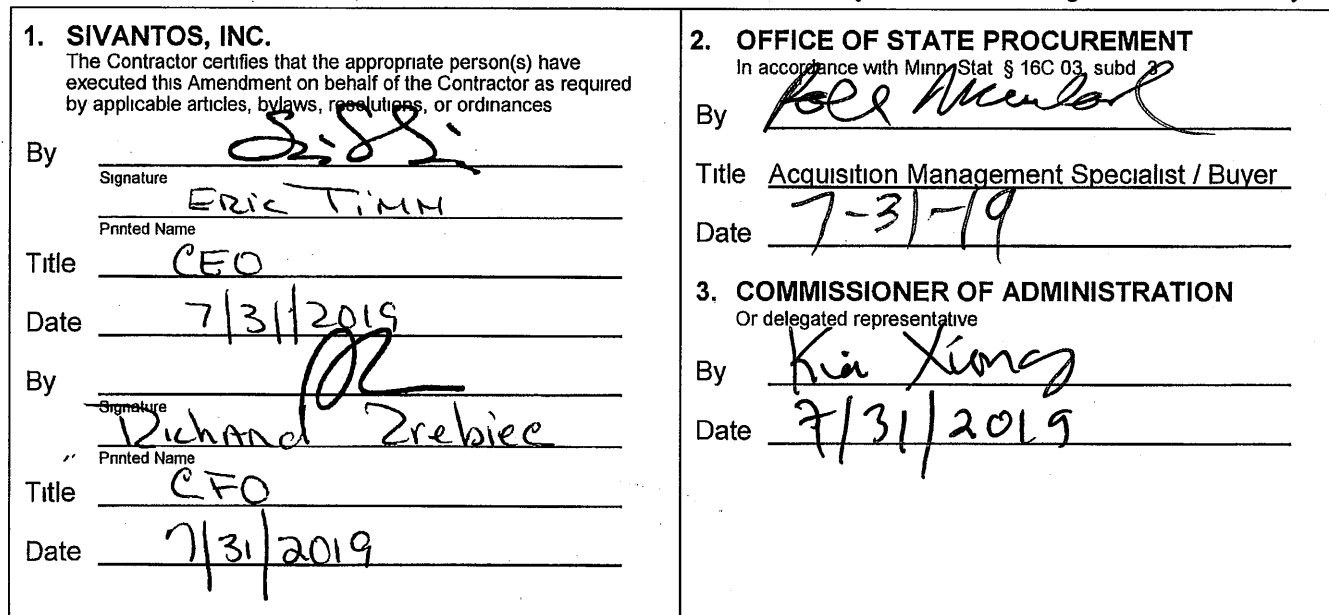 1. SIVANTOS, INC.
The Contractor certifies that the appropriate person(s) have
executed this Amendment on behalf of the Contractor as required
by applicable articles, bylaws, resolutions, or ordinances
By
Signature
ERIC TIMM
Printed Name
Title CEO
Date 7/31/2019
By
Signature
Richard Zrebiec
Printed Name
Title CFO
Date 7/31/2019
2. OFFICE OF STATE PROCUREMENT
In accordance with Minn Stat § 16C 03, subd 3
By
Title Acquisition Management Specialist / Buyer
Date 7-31-19
3. COMMISSIONER OF ADMINISTRATION
Or delegated representative
By Kia Xiong
Date 7/31/2019